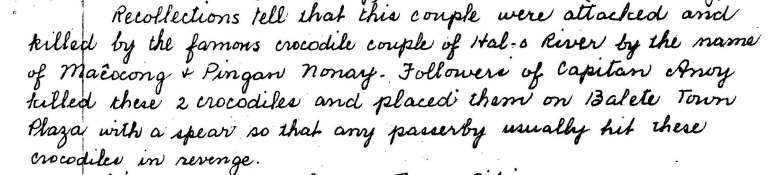 Recollections tell that this couple were attacked and
killed by the famous crocodile couple of Hal-o River by the name
of Maêocong & Pingan Nonay. Followers of Capitan Anoy
killed these 2 crocodiles and placed them on Balete Town
Plaza with a spear so that any passerby usually hit these
crocodiles in revenge.